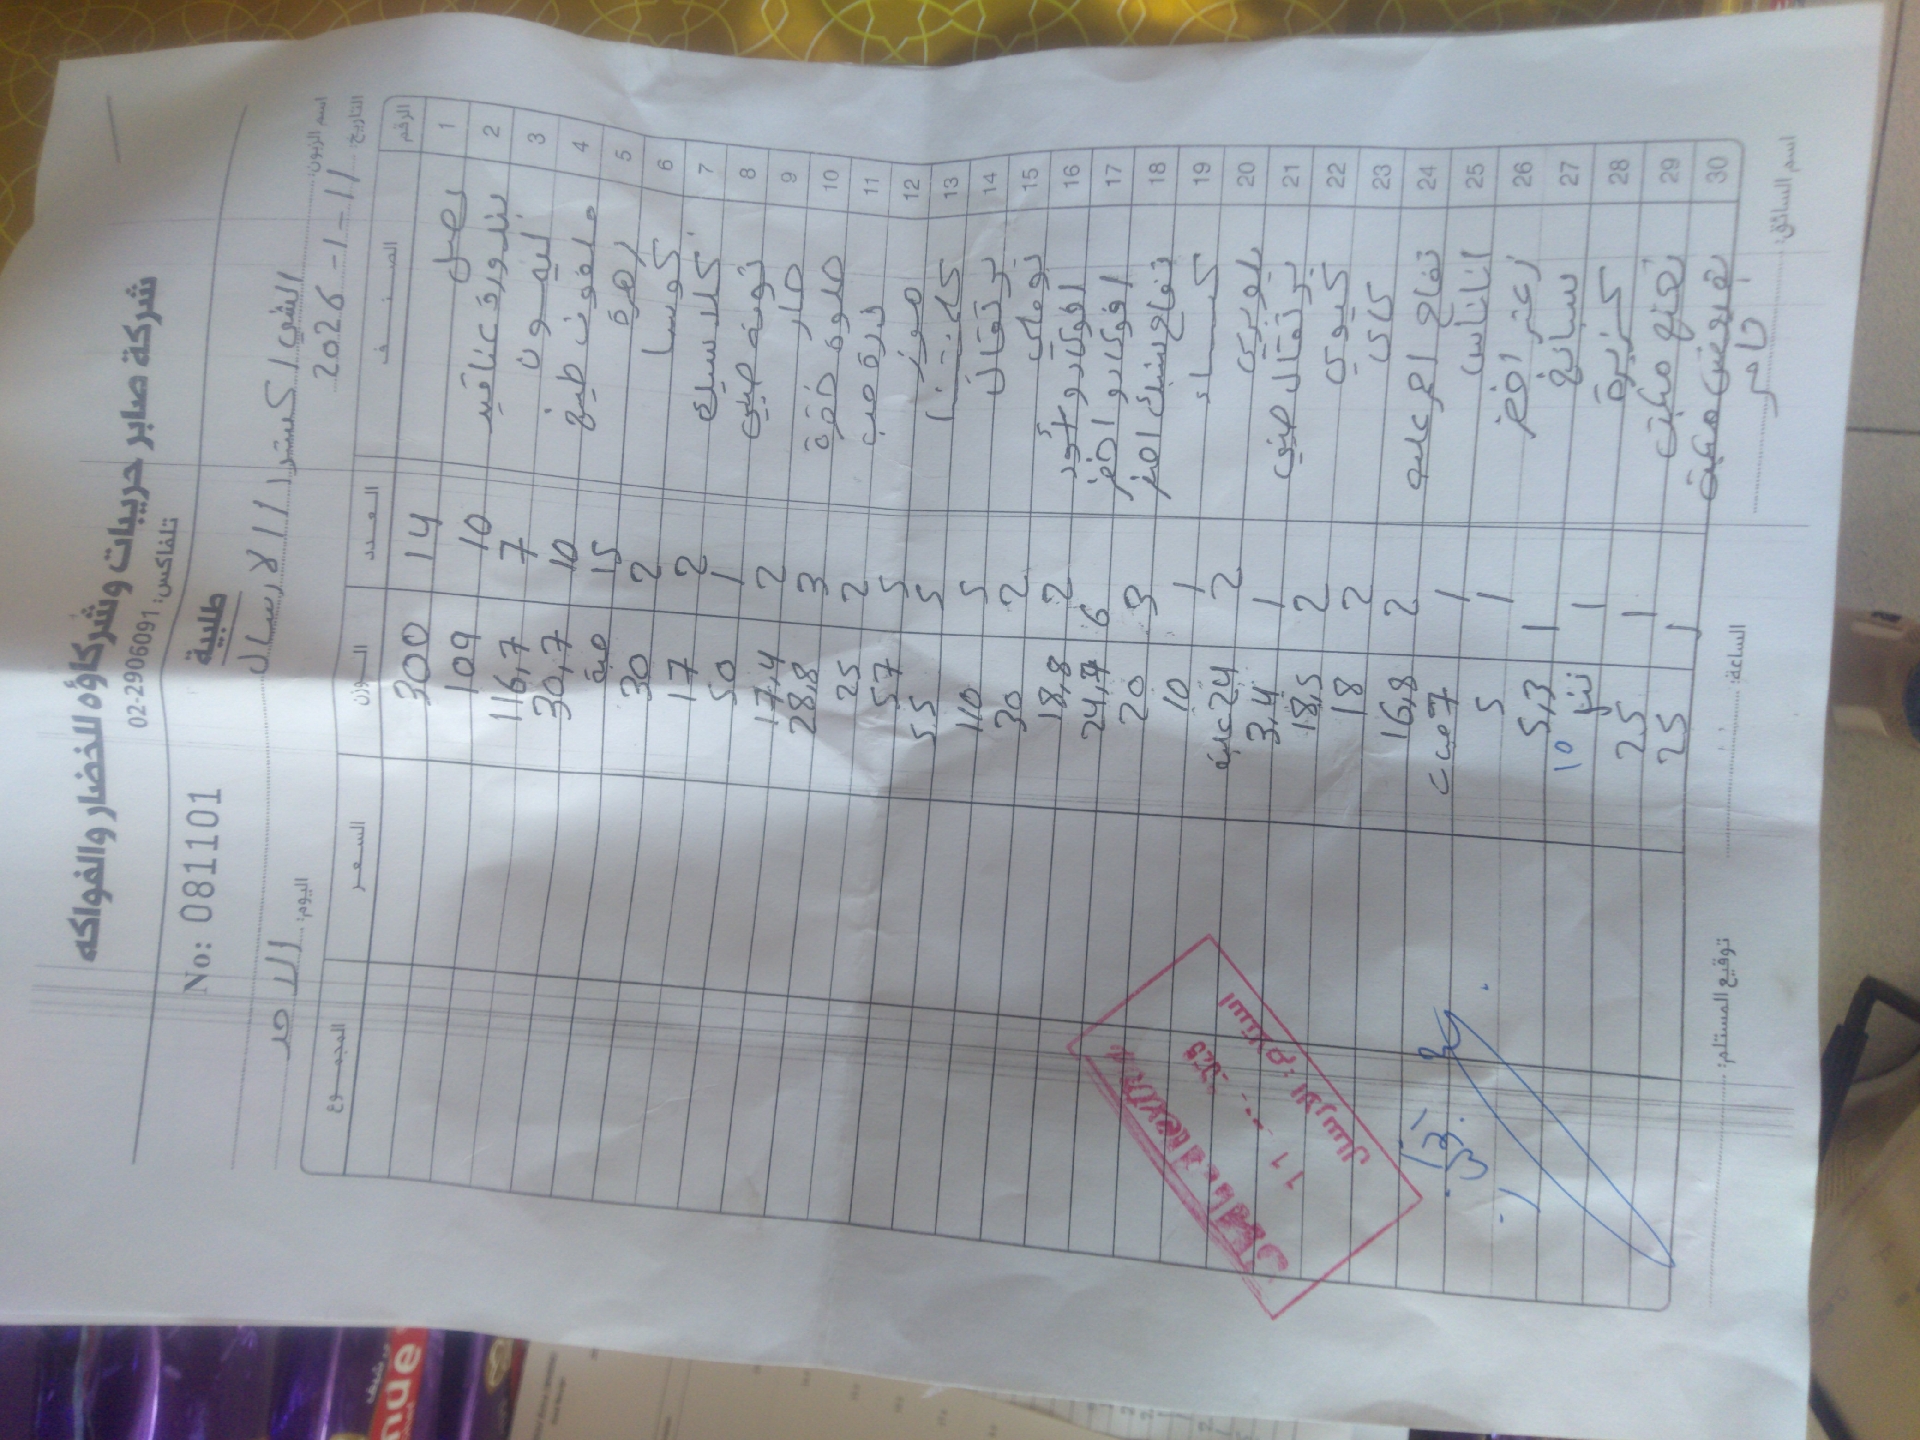 شركة صابر حريبات وشركاؤه للخضار والفواكه
تلفاكس: 02-2906091
طلبية
No: 081101
اسم الزبون: الشني اكسترا / الارسال
التاريخ: 11-1-2026 اليوم: الاحد
الرقم الصنف العدد الوزن السعر المجموع
1 بصل 14 300
2 بندورة عناقيد 10 109
3 ليمون 7 116,7
4 ملفوف طبيخ 10 30,7
5 زهرة 15 حبة
6 كوسا 2 30
7 كلاسيك 2 17
8 ثومة صيني 1 50
9 حار 2 17,4
10 حلوة خضرة 3 28,8
11 ذرة حب 2 25
12 موز 5 57
13 5 55
14 برتقال 5 110
15 بوملي 2 30
16 افوكادو 2 18,8
17 افوكادو اخضر 6 24,7
18 تفاح سنك اخضر 3 20
19 1 10
20 بلوبيري 2 24 علبة
21 برتقال صيني 1 3,4
22 كيوي 2 18,5
23 كاكي 2 18
24 تفاح احمر عليه 2 16,8
25 اناناس 1 7 حبت
26 زعتر اخضر 1 5
27 سبانخ 1 5,3
28 كزبرة 1 10
29 نعنع مكبت 1 25
30 بقدونس مكبت 1 25
اسم السائق: ثامر الساعة: توقيع المستلم:
استلام: الارسال
11